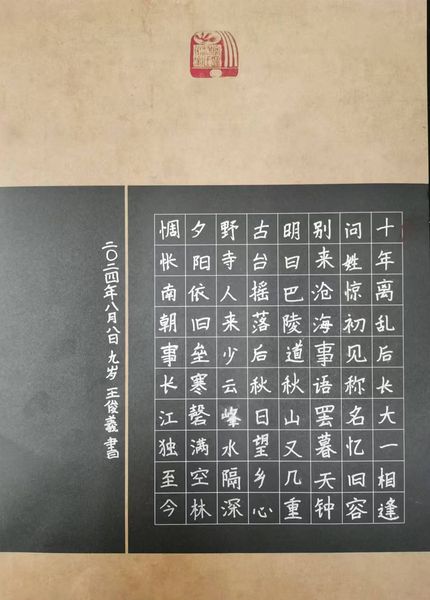 十年离乱后长大一相逢
问姓惊初见称名忆旧容
别来沧海事语罢暮天钟
明日巴陵道秋山又几重
古台摇落后秋日望乡心
野寺人来少云峰水隔深
夕阳依旧垒寒磬满空林
惆怅南朝事长江独至今
二〇二四年八月八日 九岁 王俊羲 書